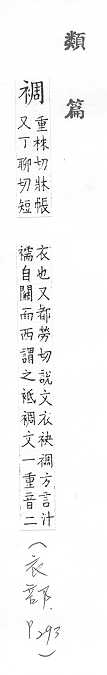 類篇
裯
重株切牀帳
又丁聊切短
衣也又都勞切說文衣袂裯方言汁
襦自關而西謂之袛裯文一重音二
(衣部 P293)